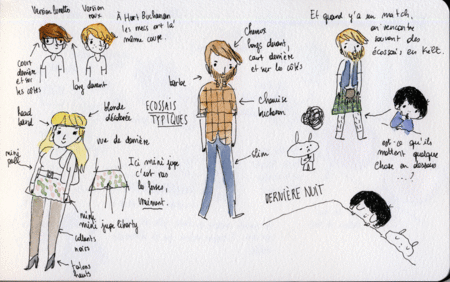 Version lunettes
Version roux
À Hart Buchanan
les mecs ont la
même coupe.
court
derrière
et sur
les côtés
long devant
cheveux
longs devant,
court derrière
et sur les côtés
barbe
ECOSSAIS
TYPIQUES
chemise
bucheron
slim
Et quand y'a un match,
on rencontre
souvent des
écossais en kilt.
est-ce qu'ils
mettent quelque
chose en dessous
...?
head
band
blonde
décolorée
vue de derrière
mini
pull
Ici mini jupe
c'est ras
les fesses,
vraiment.
mini
mini jupe liberty
collants
noirs
talons
hauts
DERNIÈRE NUIT